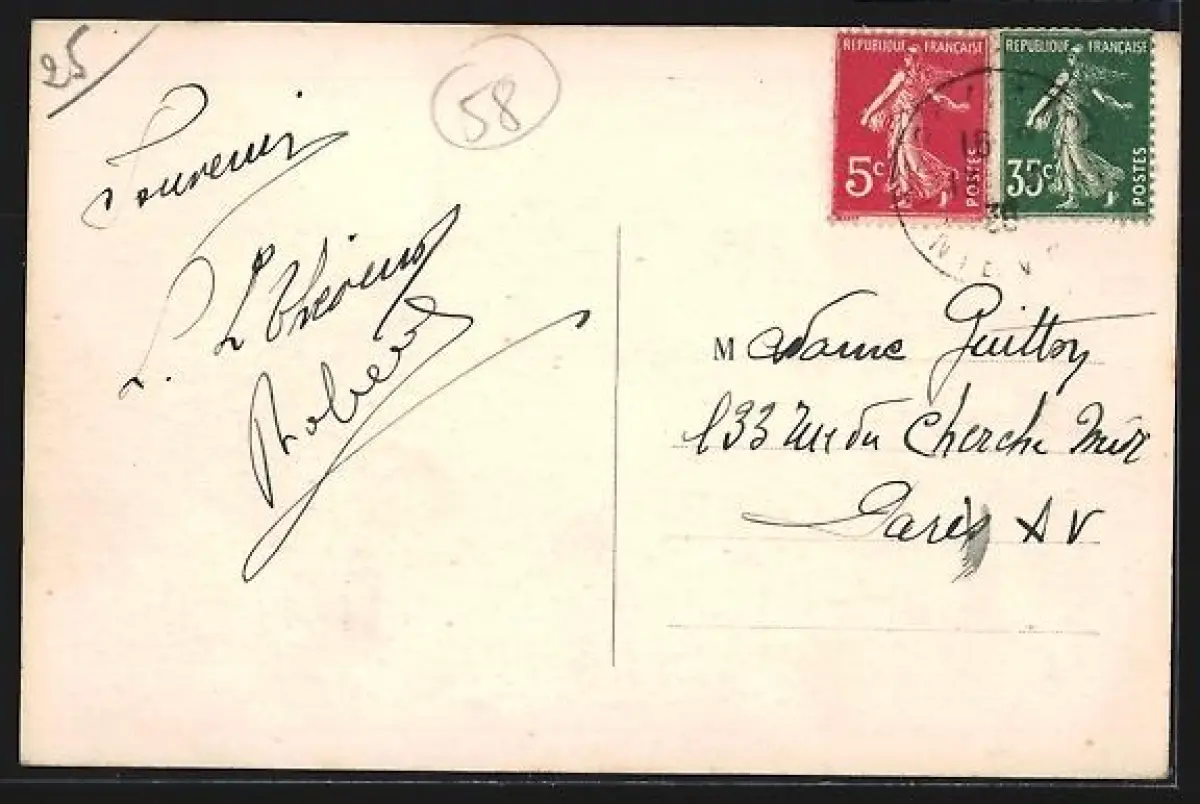 25
58
REPUBLIQUE FRANÇAISE
5c
POSTES
REPUBLIQUE FRANÇAISE
35c
POSTES
Souvenir
Robert
Madame Guitton
133 Rue du Cherche Midi
Paris XV